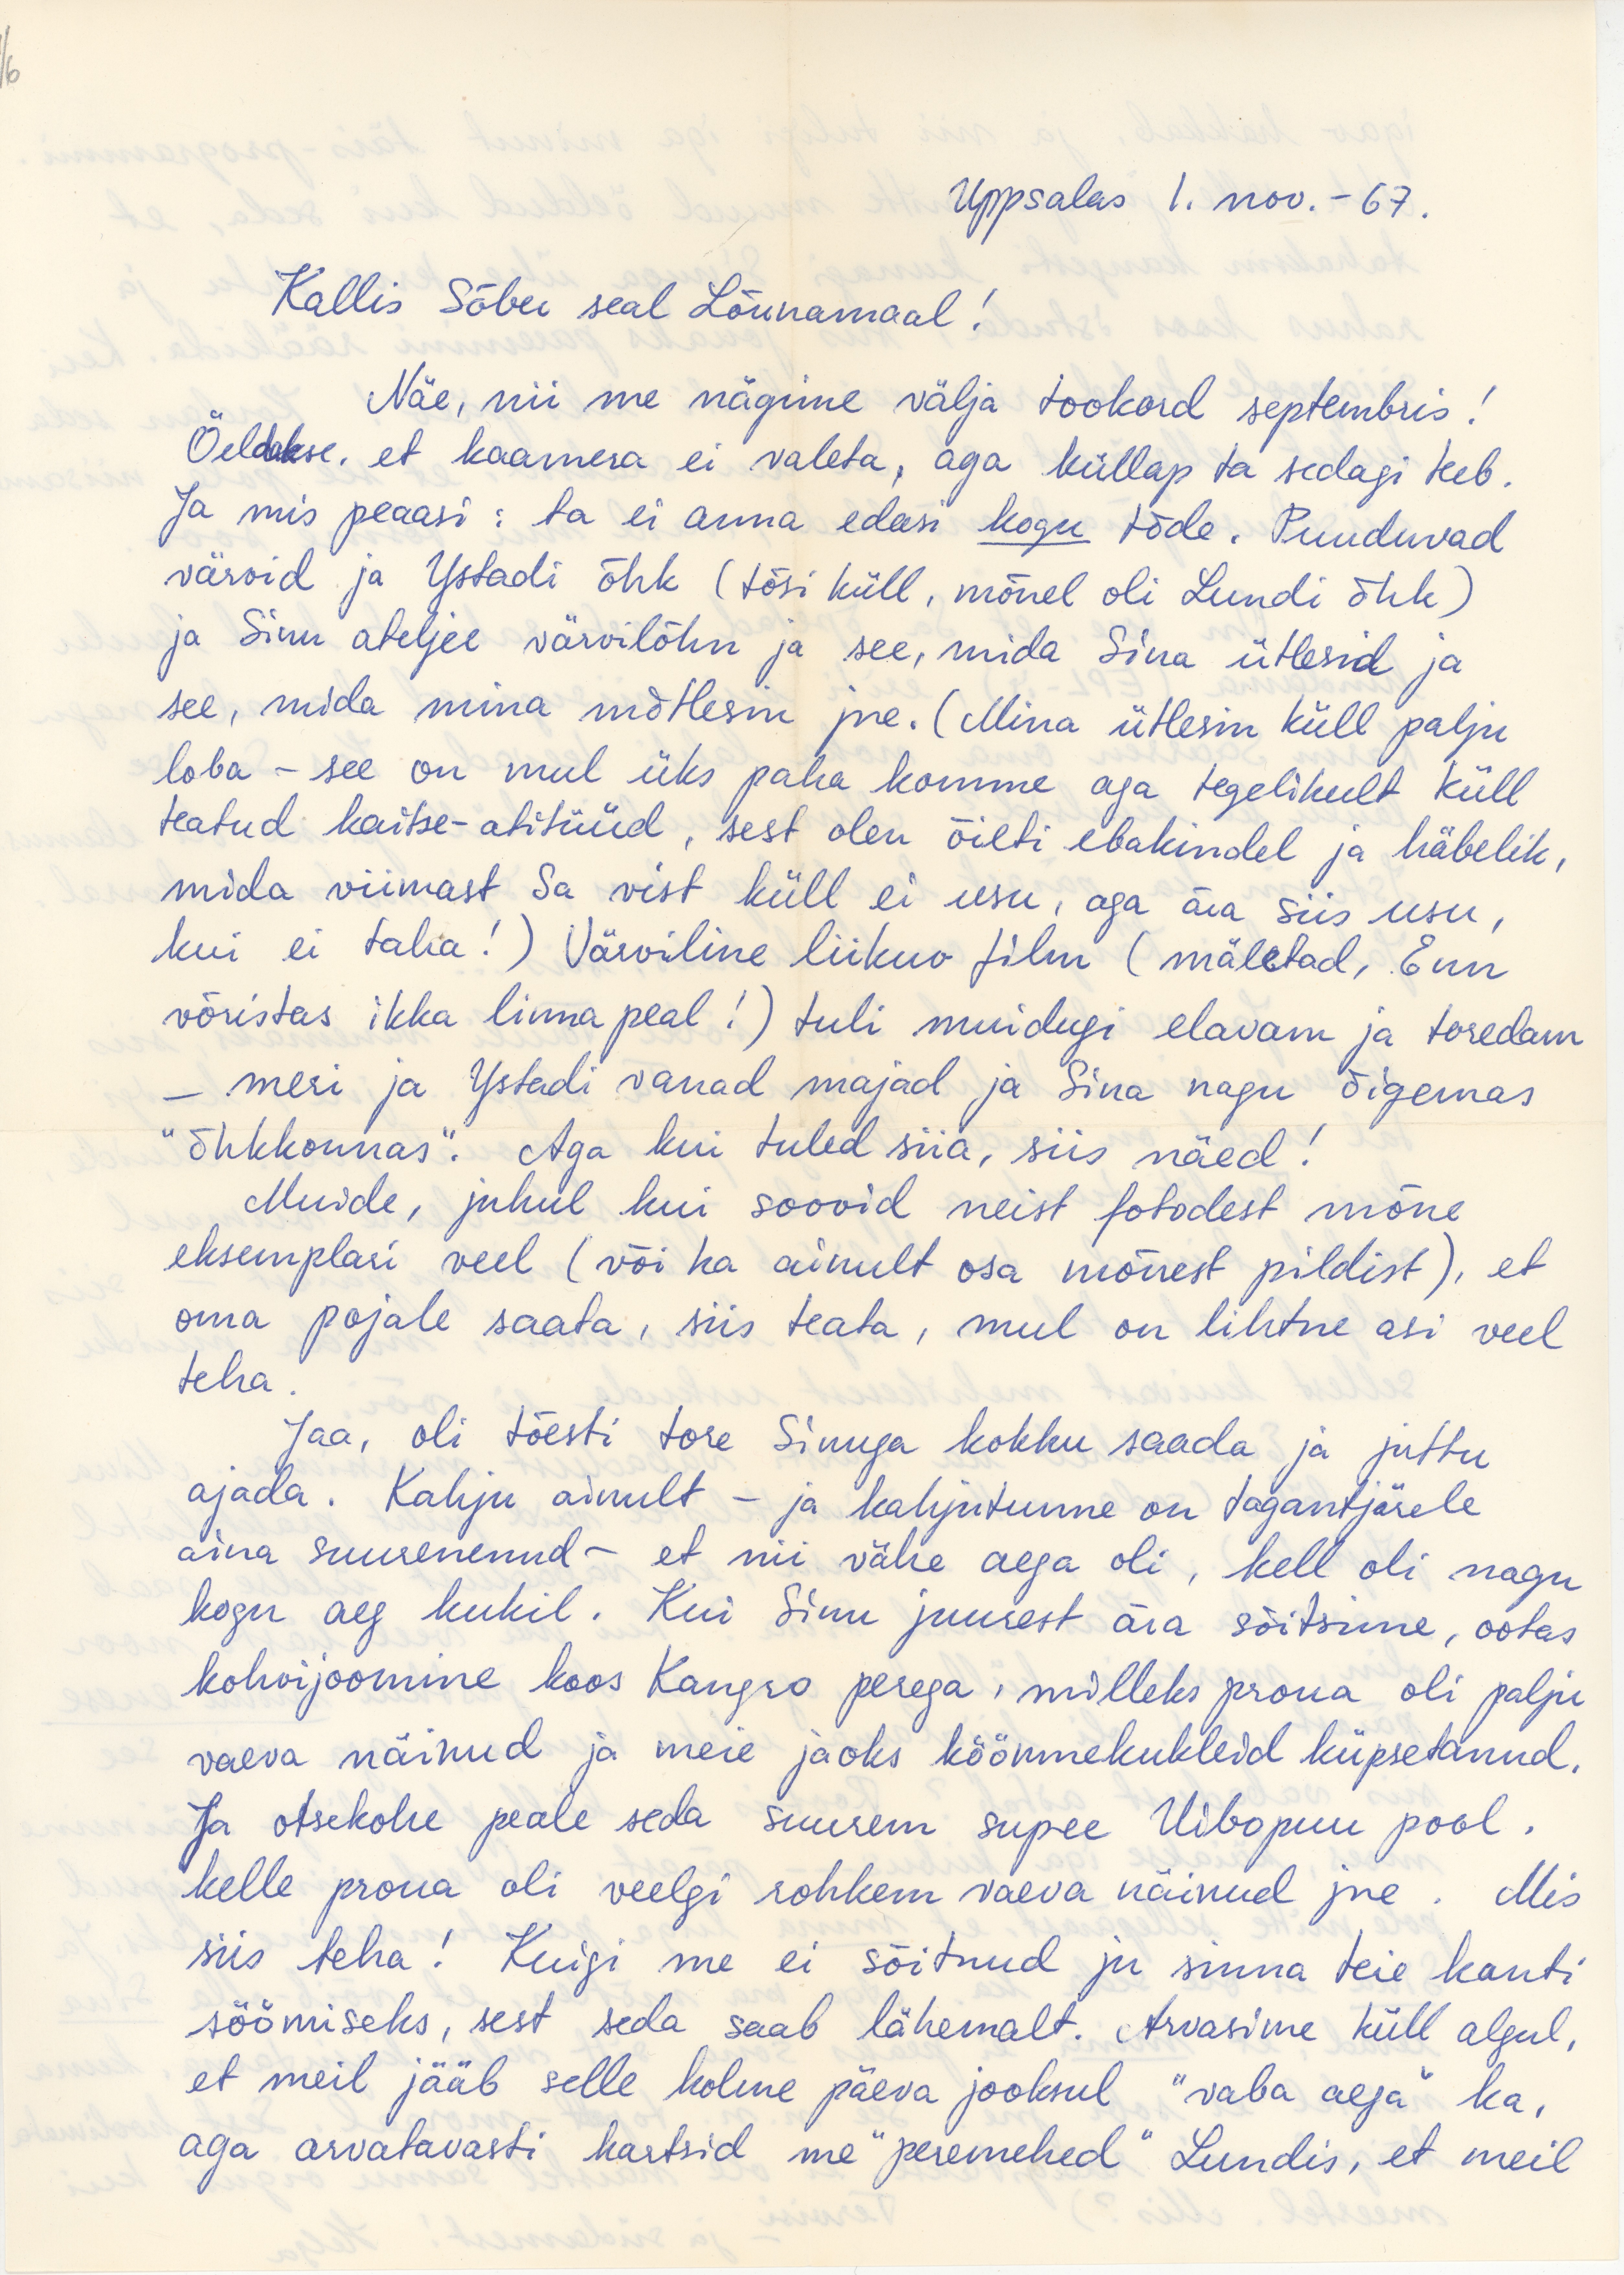 /6
Uppsalas 1. nov. - 67.
Kallis Sõber seal Lõunamaal!
Näe, nii me nägime välja tookord septembris!
Öeldakse, et kaamera ei valeta, aga küllap ta sedagi teeb.
Ja mis peaasi: ta ei anna edasi kogu tõde. Puuduvad
värvid ja Ystadi õhk (tõsi küll, mõnel oli Lundi õhk)
ja Sinu ateljee värvilõhn ja see, mida Sina ütlesid ja
see, mida mina mõtlesin jne. (Mina ütlesin küll palju
loba - see on mul üks paha komme aga tegelikult küll
teatud kaitse-atitüüd, sest olen õieti ebakindel ja häbelik,
mida viimast Sa vist küll ei usu, aga ära siis usu,
kui ei taha!) Värviline liikuv film (mäletad, Enn
võristas ikka linna peal!) tuli muidugi elavam ja toredam
- meri ja Ystadi vanad majad ja Sina nagu õigemas
"õhkkonnas". Aga kui tuled siia, siis näed!
Muide, juhul kui soovid neist fotodest mõne
eksemplari veel (või ka ainult osa mõnest pildist), et
oma pojale saata, siis teata, mul on lihtne asi veel
teha.
Jaa, oli tõesti tore Sinuga kokku saada ja juttu
ajada. Kahju ainult - ja kahjutunne on tagantjärele
aina suurenenud - et nii vähe aega oli, kell oli nagu
kogu aeg kukil. Kui Sinu juurest ära sõitsime, ootas
kohvijoomine koos Kangro perega, milleks proua oli palju
vaeva näinud ja meie jaoks köömnekukleid küpsetanud.
Ja otsekohe peale seda suurem supee Uibopuu pool,
kelle proua oli veelgi rohkem vaeva näinud jne. Mis
siis teha! Kuigi me ei sõitnud ju sinna teie kanti
söömiseks, sest seda saab lähemalt. Arvasime küll algul,
et meil jääb selle kolme päeva jooksul "vaba aega" ka,
aga arvatavasti kartsid me "peremehed" Lundis, et meil